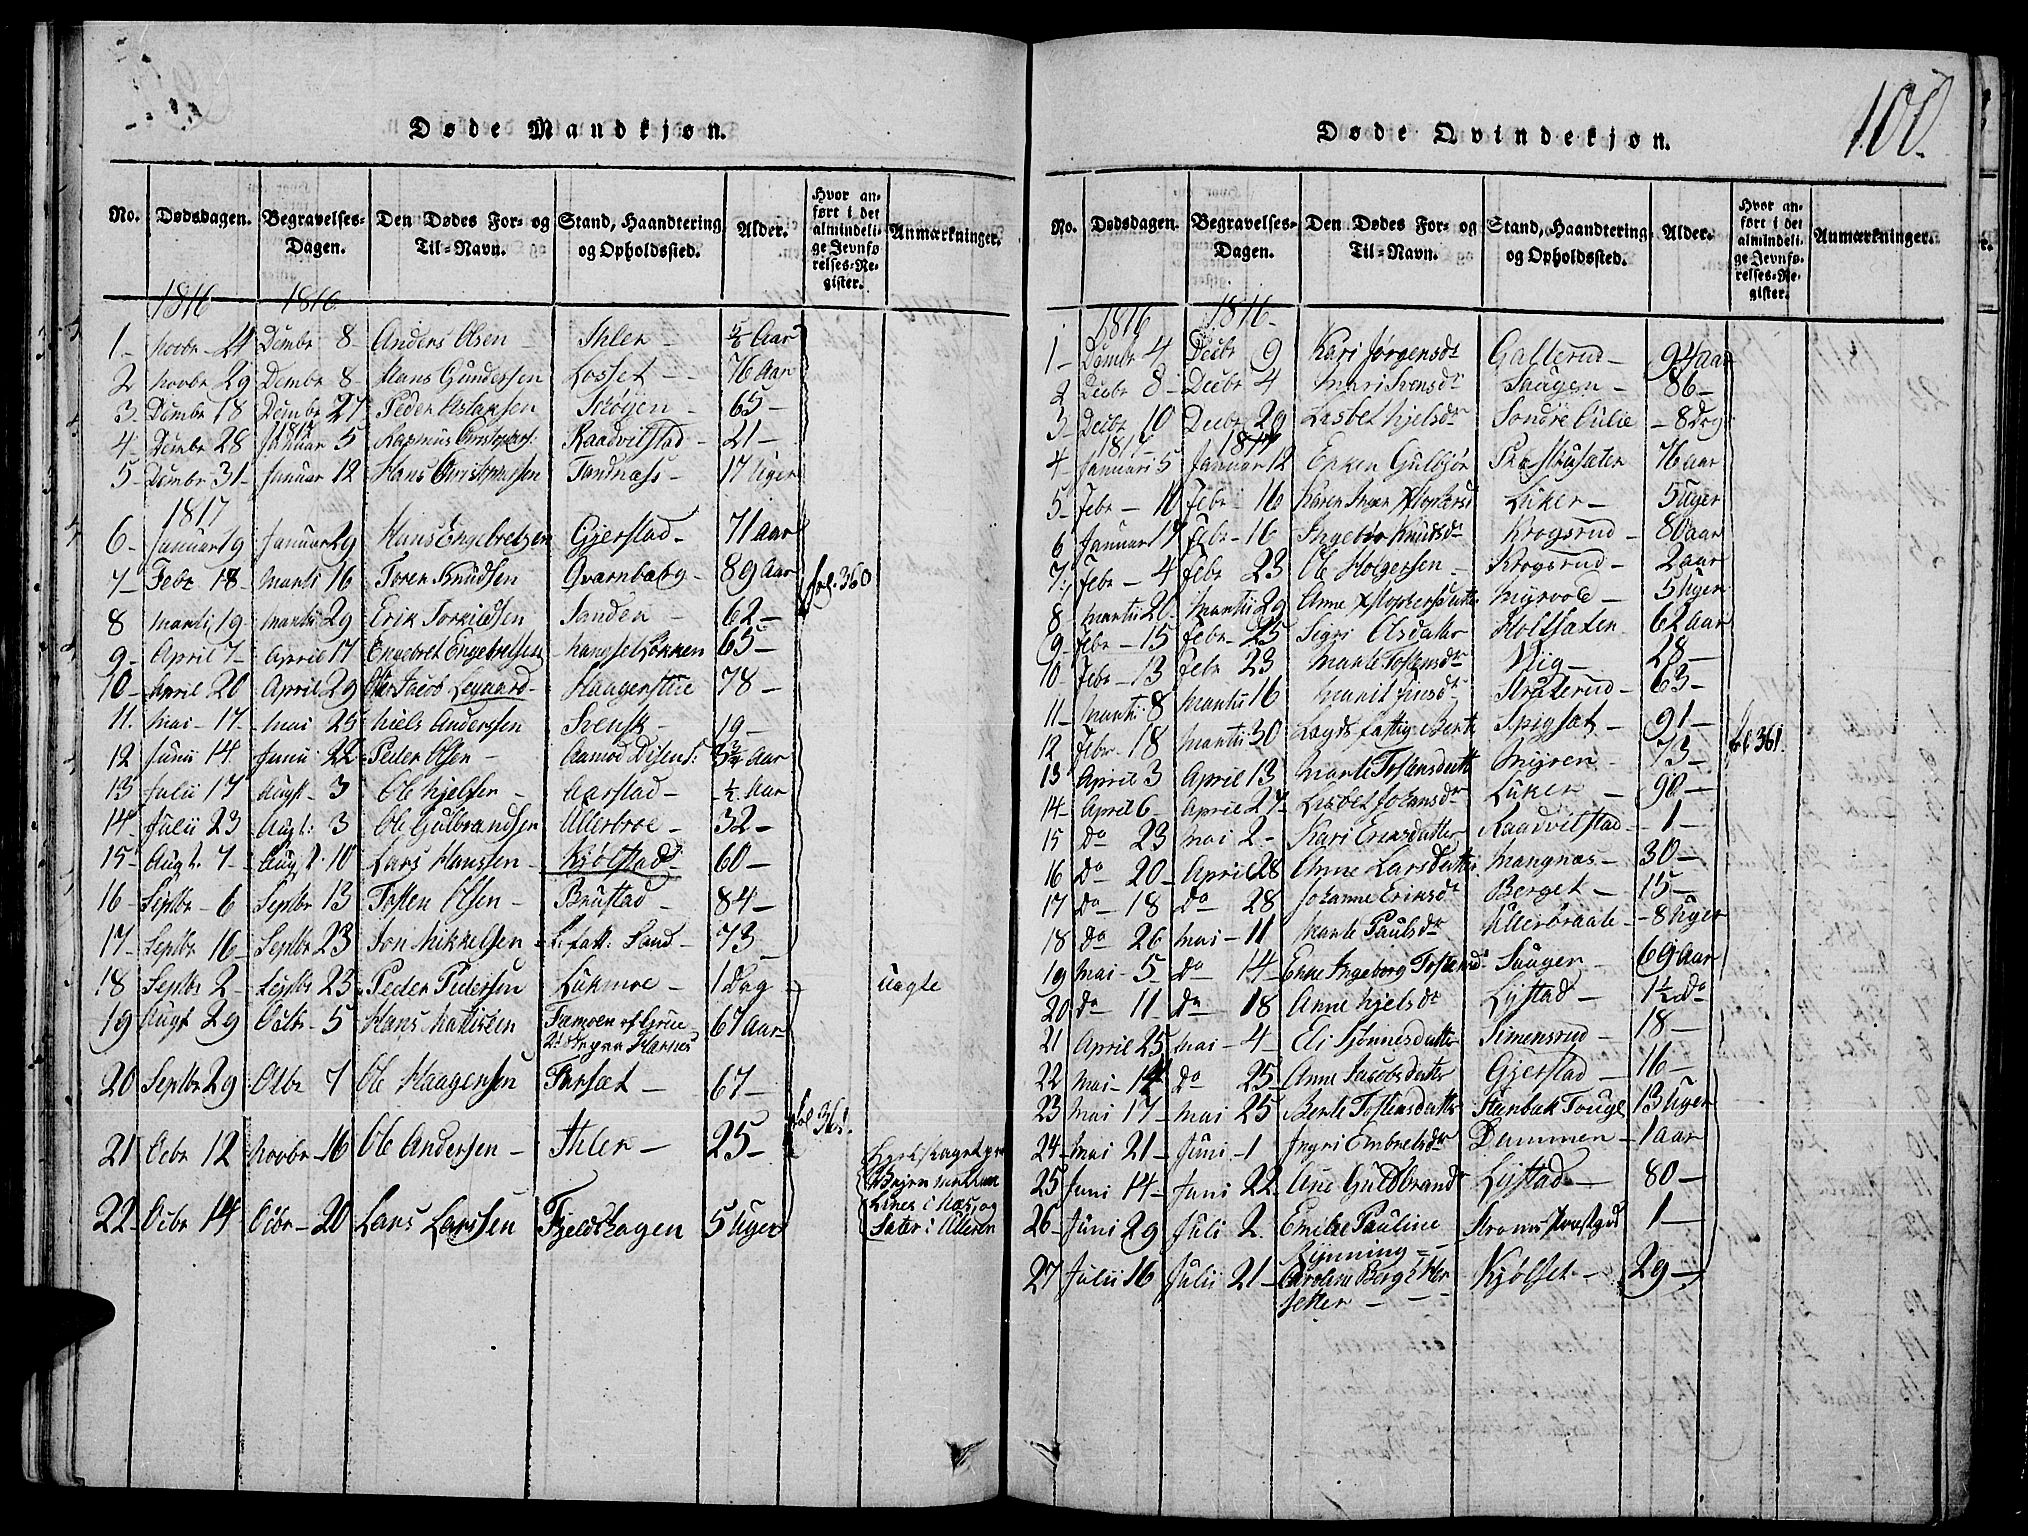 100.
Døde Mandkjøn.
No. Dødsdagen. Begravelses-Dagen. Den Dødes For- og Til-Navn. Stand, Haandtering og Opholdssted. Alder. Hvor anført i det almindelige Jevnførelses-Register. Anmærkninger.
1816 1816
1 - Novbr - 24 Dembr 8 - Anders Olsen - Ihler - ½ Aar
2 Novbr 29 Dembr 8 - Hans Gundersen Losset - 76 Aar
3 - Dembr 18 Dembr 27 Peder 65 -
1817
4 - Dembr 28 Januar 5 Rasmus Raadvilstad - 21 -
5 - Dembr 31 - Januar 12 Hans Christophersen Tandnæss - 17 Uger
1817
6 - Januar 19 Januar 29 Hans Engebretsen Gjerstad - 71 aar
7 - Febr 18 - Martii 16 Toren Knudsen Qvarnbæg - 89 Aar fol. 360
8 Martii 19 Martii 29 Erik Torkildsen Sanden - 62 -
9 - April 7 - April 17 Engebret Engebretsen 65 -
10 - April 20 April 29 Jacob Haagenstue 78 -
11. Mai - 17 - Mai 25 Niels Anderssen Svensk - 19 -
12 Junii 14. Junii 22 Peder Olsen - Aamod 3¾ Aar
13 Julii 17 Augt - 3 Ole Njelsen - Aarstad - ½ Aar
14 Julii 23 Augt: 3 Ole Gulbrandsen Ullerbroe - 32 -
15 - Augt. 7 - Augt. 10 Lars Hanssen - Kjølstad - 60 -
16 - Septbr - 6 Septbr 13 Tosten Olsen - Brustad - 84 -
17 - Septbr 16 - Septbr 23 Jon Mikkelsen - L. fatt: Sand - 73 -
18 Septbr 2 - Septbr 23 - Peder Pedersen Lukmoe - 1 Dag uægte
19 Augt 29 Octbr - 5 Hans Mattisen 67 Aar
20 Septbr 29 Octbr 7 Ole Haagensen Fursæt - 67 - fol 361.
21 Octbr 12 Novbr - 16 Ole Andersen - Ihler - 25 -
22 - Octbr 14 Octbr - 20 Lars Larssen Fjeldhagen 5 Uger
Døde Qvindekjøn.
No. Dødsdagen. Begravelses-Dagen. Den Dødes For- og Til-Navn. Stand, Haandtering og Opholdssted. Alder. Hvor anført i det almindelige Jevnførelses-Register. Anmærkninger.
1816 1816 -
1 - Dembr 4 Decbr 9 Kari Jørgensdr Gallerud - 94 aar
2 Decbr 8 - Decbr 4 Mari Svensdr Haugen - 86 -
3 - Decbr 10 Decbr 29 Lisbet Njelsdr Søndre Julie - 8 Dage
1817 - 1817
4 - Januarii 5 Januar 12 Enken Gulbjør 76 aar
5 - Febr - 10 Febr - 16 Karen Luker - 5 Uger
6 Januar 17 Febr - 16 Ingebør Knudsdr Krogsrud - 80 aar
7 Febr - 4 Febr 23 Ole Holgersen - Krogsrud - 2 aar
8 Martii 20. Martii 29 Anne Xstophersdatter Myrvold - 5 Uger
9 - Febr - 15 Febr - 25 Sigri Olsdatter Holtsæter 62 aar
10 Febr - 13 Febr 23 Marte Tostensdr Nüg - 28 -
11 - Martii 8 Martii 16 Marit Jensdr Straterud - 63 -
12 Febr - 18 Martii 30 Lægds fattige Berte Spigset - 91 - fol. 361.
13 April 3 April 13 Marte Tostensdatter Myren - 73 -
14 - April 6 April 27 - Lisbet Johansdr Luker - 90 -
15 do 23 Mai 2 - Kari Ericsdatter Raadvilstad - 1 -
16 do 20 - April 28 Anne Larsdatter Mangnæs - 30 -
17 do - 18 do 28 Johanne Eriksdr Berget - 15 -
18 do 26 Mai - 11 Marte Paulsdr Ullerbraate - 8 Uger
19 Mai - 5 do 14 - Enke Ingeborg Tostensdr Haugen - 69 aar
20 do 11 - do 18 Anne Njelsdr Lystad - 1½ do
21 April 25 Mai - 4 - Eli Sjønnesdatter Simensrud - 18 -
22 Mai - 14 do 25 - Anne Jacobsdatter Gjerstad - 16 -
23 Mai 17 - Mai 25 Berte Tostensdatter 13 Uger
24 - Mai 21 - Juni - 1 Ingri Embretsdr Dammen - 1 aar
25 Juni 14 - Juni 22 Ane Guldbrandsdr Lystad - 80 -
26 - Juni 29 Juli 2. Emilie Pauline Lynning - Strøms Præstegd 1 -
27 Julii 16 Julii 21 - Caroline Berg Kjølset - 29 -